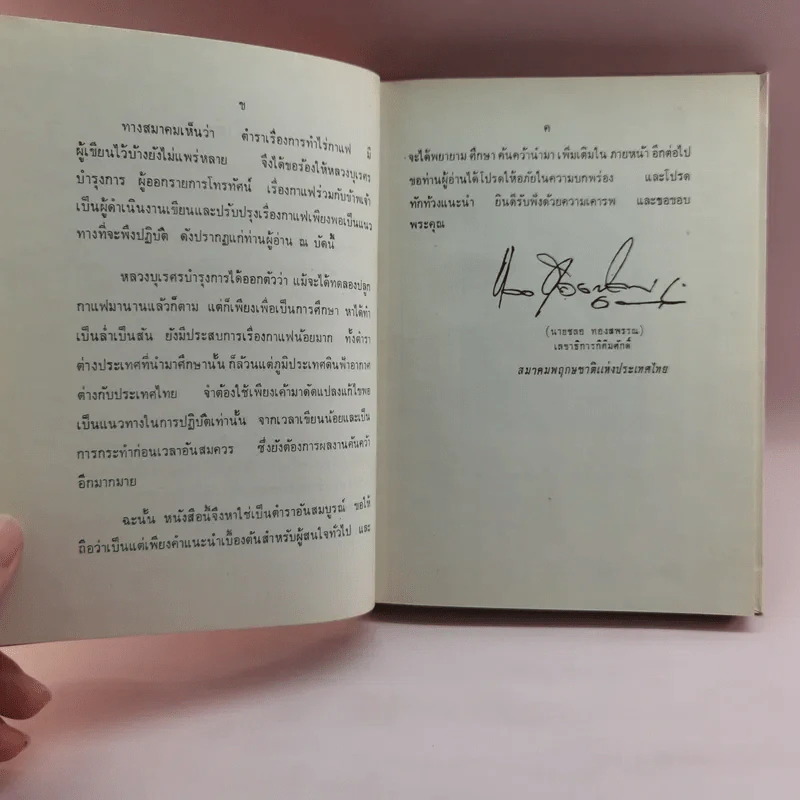 ข
ทางสมาคมเห็นว่า ตำราเรื่องการทำไร่กาแฟ มี
ผู้เขียนไว้บ้างยังไม่แพร่หลาย จึงได้ขอร้องให้หลวงบุเรศร
บำรุงการ ผู้ออกรายการโทรทัศน์ เรื่องกาแฟร่วมกับข้าพเจ้า
เป็นผู้ดำเนินงานเขียนและปรับปรุงเรื่องกาแฟเพียงพอเป็นแนว
ทางที่จะพึงปฏิบัติ ดังปรากฏแก่ท่านผู้อ่าน ณ บัดนี้
หลวงบุเรศรบำรุงการได้ออกตัวว่า แม้จะได้ทดลองปลูก
กาแฟมานานแล้วก็ตาม แต่ก็เพียงเพื่อเป็นการศึกษา หาได้ทำ
เป็นล่ำเป็นสัน ยังมีประสบการเรื่องกาแฟน้อยมาก ทั้งตำรา
ต่างประเทศที่นำมาศึกษานั้น ก็ล้วนแต่ภูมิประเทศดินฟ้าอากาศ
ต่างกับประเทศไทย จำต้องใช้เพียงเค้ามาดัดแปลงแก้ไขพอ
เป็นแนวทางในการปฏิบัติเท่านั้น จากเวลาเขียนน้อยและเป็น
การกระทำก่อนเวลาอันสมควร ซึ่งยังต้องการผลงานค้นคว้า
อีกมากมาย
ฉะนั้น หนังสือนี้จึงหาใช่เป็นตำราอันสมบูรณ์ ขอให้
ถือว่าเป็นแต่เพียงคำแนะนำเบื้องต้นสำหรับผู้สนใจทั่วไป และ
ค
จะได้พยายาม ศึกษา ค้นคว้านำมา เพิ่มเติมใน ภายหน้า อีกต่อไป
ขอท่านผู้อ่านได้โปรดให้อภัยในความบกพร่อง และโปรด
ทักท้วงแนะนำ ยินดีรับฟังด้วยความเคารพ และขอขอบ
พระคุณ
(นายชลอ ทองสุพรรณ)
เลขาธิการกิติมศักดิ์
สมาคมพฤกษชาติแห่งประเทศไทย